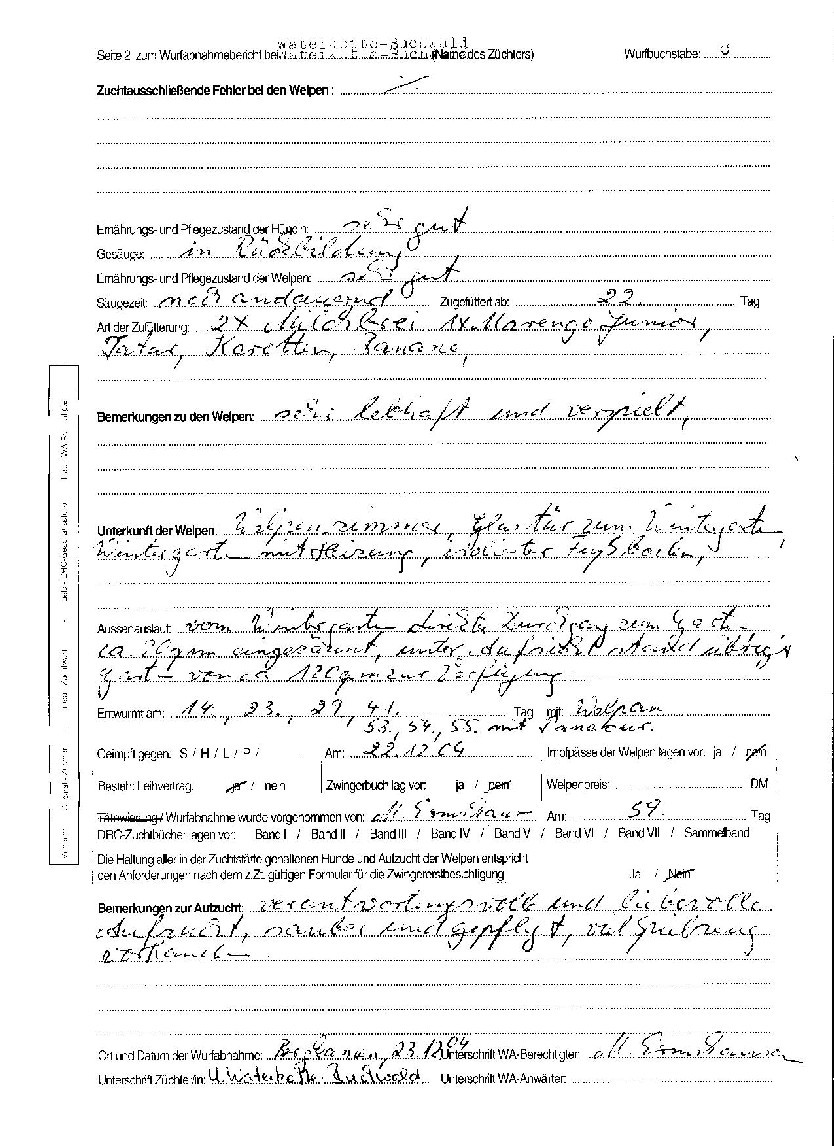 Waterkotte-Buchwald
Seite 2 zum Wurfabnahmebericht bei (Name des Züchters) Wurfbuchstabe: G
Zuchtausschließende Fehler bei den Welpen: ./.
Ernährungs- und Pflegezustand der Hündin: sehr gut
Gesäuge: in Rückbildung
Ernährungs- und Pflegezustand der Welpen: sehr gut
Säugezeit: noch andauernd Zugefüttert ab: 22. Tag
Art der Zufütterung: 2x Milchbrei 1x Marengo Junior,
Tatar, Karotten, Banane,
Bemerkungen zu den Welpen: sehr lebhaft und verspielt,
Unterkunft der Welpen: Welpenzimmer, Glastür zum Wintergarten
Wintergarten mit Heizung, isolierter Fußboden,
Aussenauslauf: vom Wintergarten direkter Zugang zum Garten
ca 20qm eingezäunt, unter Aufsicht stand übriger
Garten von ca 120qm zur Verfügung
Entwurmt am: 14., 23., 29, 41. Tag mit: Welpan
53., 54., 55. mit Panacur.
Geimpft gegen: S / H / L / P / Am: 22.12.04 Impfpässe der Welpen lagen vor: ja / nein
Besteht Leihvertrag: ja / nein Zwingerbuch lag vor: ja / nein Welpenpreis: DM
Tätowierung / Wurfabnahme wurde vorgenommen von: Am: 59. Tag
DRC-Zuchtbücher lagen vor: Band I / Band II / Band III / Band IV / Band V / Band VI / Band VII / Sammelband
Die Haltung aller in der Zuchtstätte gehaltenen Hunde und Aufzucht der Welpen entspricht
den Anforderungen nach dem z.Zt. gültigen Formular für die Zwingererstbesichtigung Ja / Nein
Bemerkungen zur Aufzucht: verantwortungsvolle und liebevolle
Aufzucht, sauber und gepflegt, viel Erfahrung
vorhanden
Ort und Datum der Wurfabnahme: 23.12.04 Unterschrift WA-Berechtigter:
Unterschrift Züchter/in: U. Waterkotte-Buchwald Unterschrift WA-Anwärter: